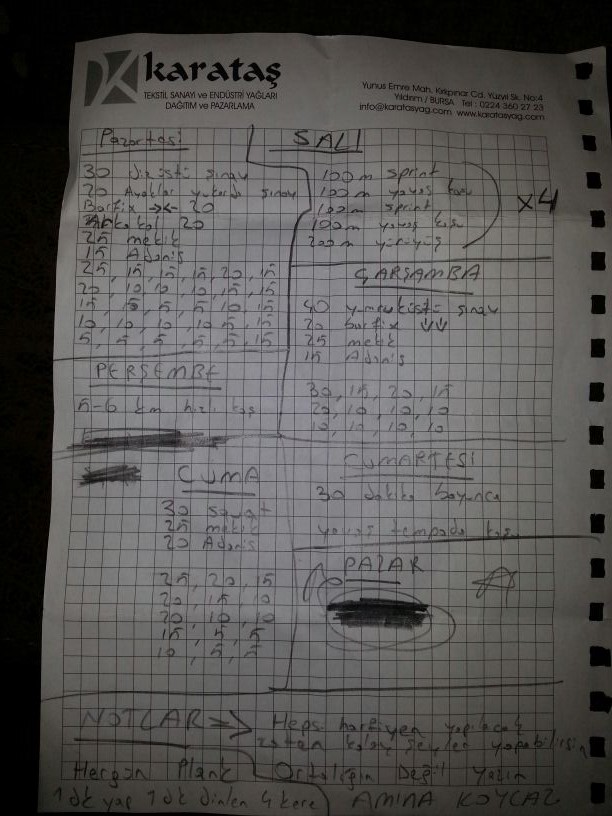 karataş
TEKSTİL SANAYİ ve ENDÜSTRİ YAĞLARI
DAĞITIM ve PAZARLAMA
Yunus Emre Mah. Kırkpınar Cd. Yüzyıl Sk. No:4
Yıldırım / BURSA Tel : 0224 360 27 23
info@karatasyag.com www.karatasyag.com
Pazartesi
30 dizüstü şınav
20 Ayaklar yukarda şınav
Barfix →← 20
Arka kol 20
25 mekik
15 Adonis
25, 15, 15, 15, 20, 15
20, 10, 10, 10, 15, 15
15, 5, 5, 5, 10, 15
10, 10, 10, 10, 5, 15
5, 5, 5, 5, 5, 15
SALI
100m sprint
100m yavaş koşu
100m sprint
100m yavaş koşu
200m yürüyüş
x4
ÇARŞAMBA
40 yumruküstü şınav
20 barfix ↓↓
25 mekik
15 Adonis
30, 15, 20, 15
20, 10, 10, 10
10, 10, 10, 10
PERŞEMBE
5-6 km hızlı koş
CUMA
30 squat
25 mekik
20 Adonis
25, 20, 15
20, 15, 10
20, 10, 10
15, 5, 5
10, 5, 5
CUMARTESİ
30 dakika boyunca
yavaş tempoda koşu
PAZAR
NOTLAR => Hepsi harfiyen yapılacak
zaten kolay şeyler yapabilirsin
Hergün Plank
1 dk yap 1 dk dinlen 4 kere
Ortalığın Değil Yalın
AMINA KOYCAZ